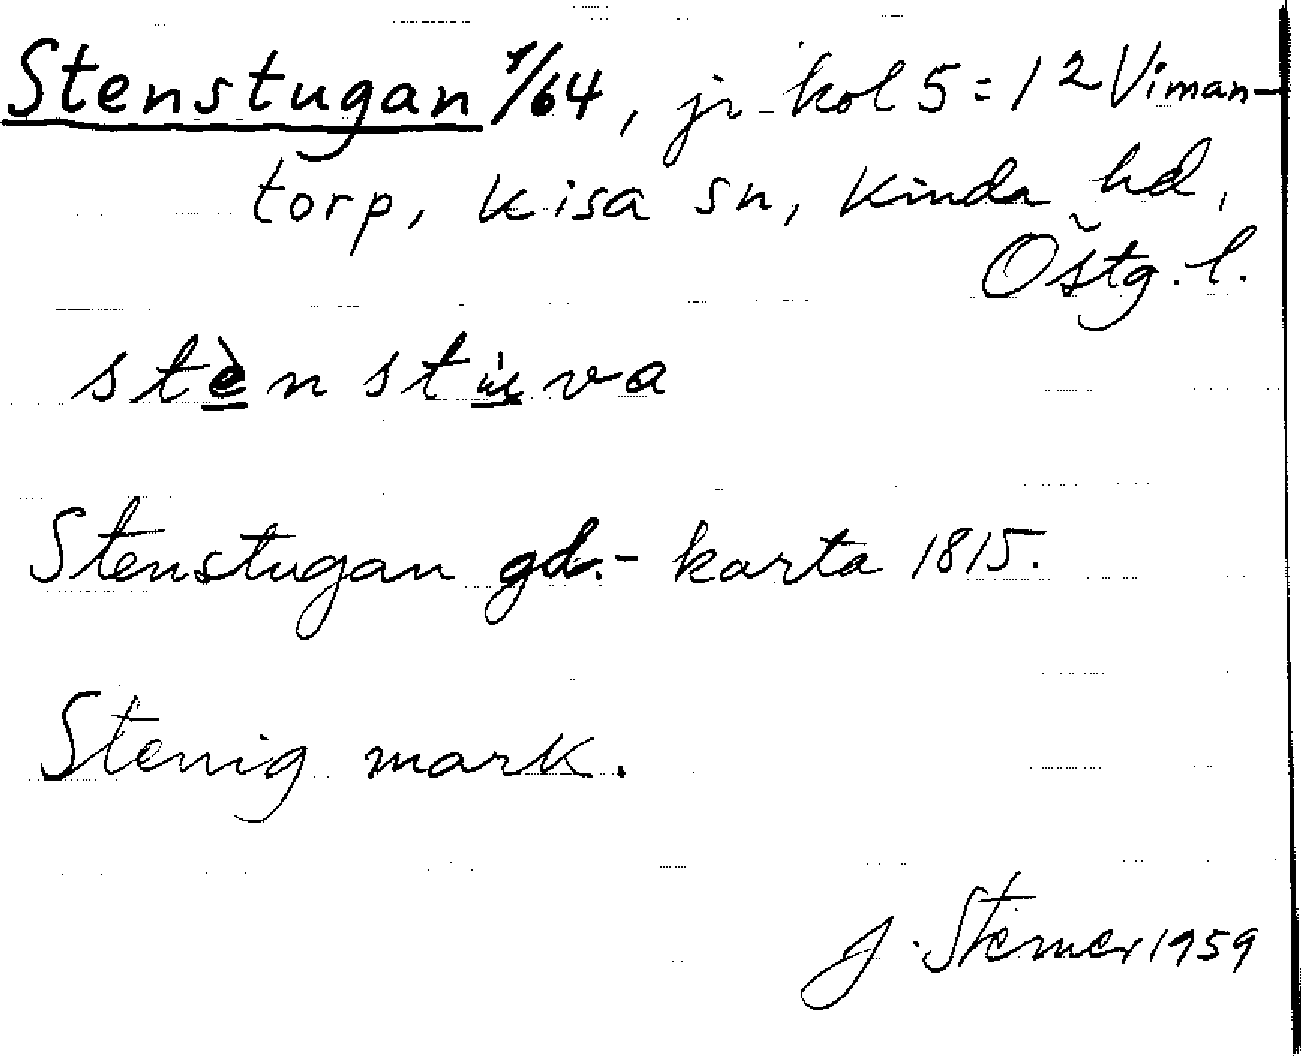 Stenstugan 1/64, jr-kol 5:12 Viman-
torp, Kisa sn, Kinda hd,
Östg. l.
stènstùva
Stenstugan gd.- karta 1815.
Stenig mark.
J. Sterner 1959